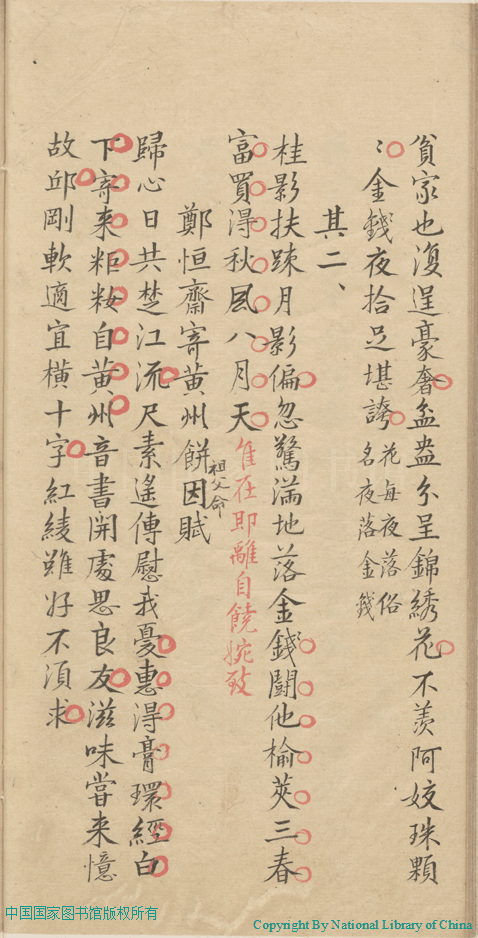 貧家也復逞豪奢盆盎分呈錦綉花不羨阿姣珠顆
〻金錢夜拾足堪誇花每夜落俗名夜落金錢
其二、
桂影扶踈月影偏忽驚滿地落金錢鬪他榆莢三春
富買得秋風八月天隹在即離自饒婉致
鄭恒齋寄黃州餅因賦祖父命
歸心日共楚江流尺素遙傳慰我憂惠淂膏環經白
下寄来粔籹自黃州音書開處思良友滋味嘗来憶
故邱剛軟適宜橫十字紅綾雖好不須求
中国国家图书馆版权所有
Copyright By National Library of China